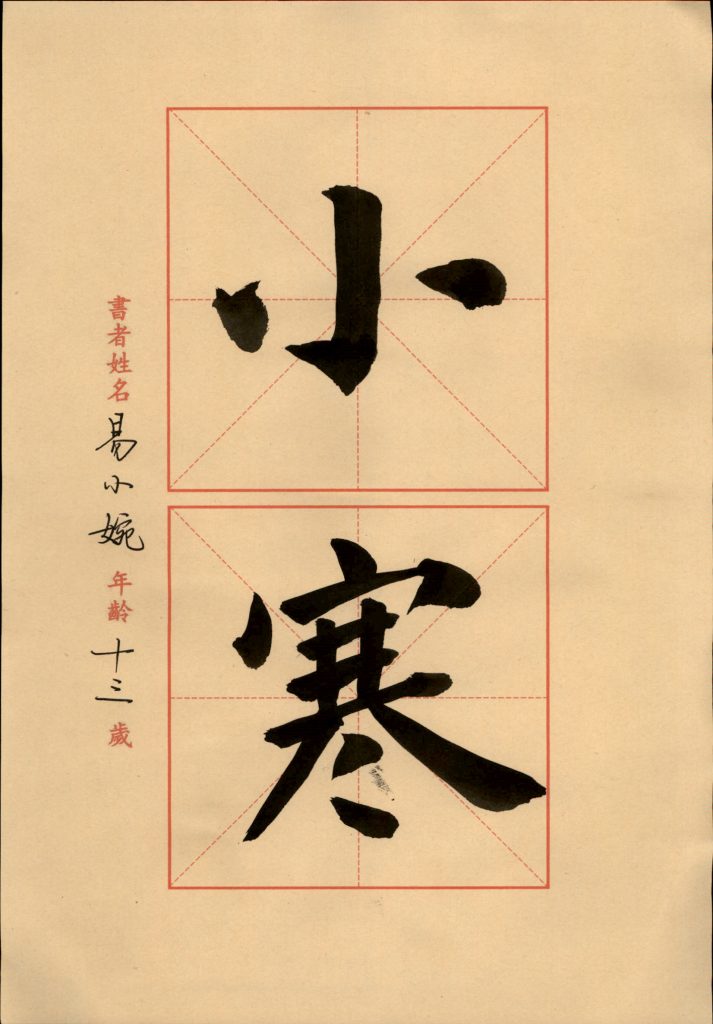 小寒
書者姓名易小婉年齡十三歲